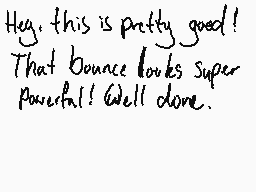 Hey, this is pretty good!
That bounce looks super
powerful! Well done.